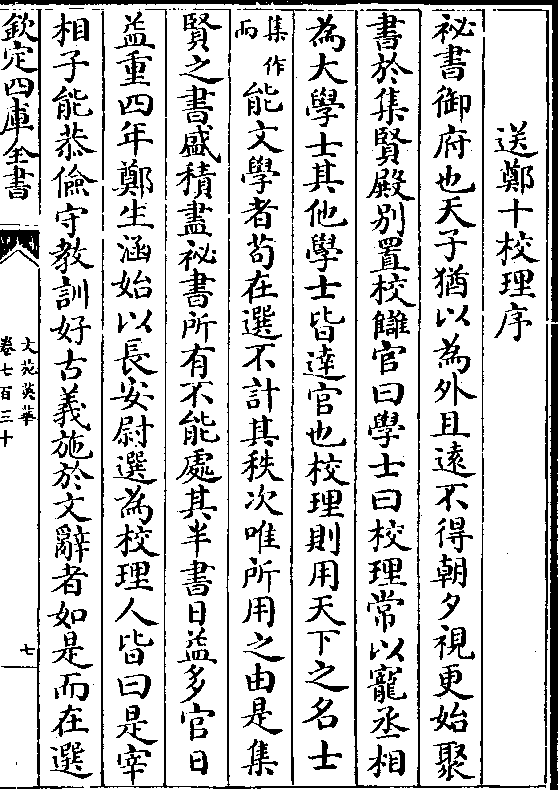 送鄭十校理序
祕書御府也天子猶以為外且逺不得朝夕視更始聚
書於集賢殿别置校讎官曰學士曰校理常以寵丞相
為大學士其他學士皆達官也校理則用天下之名士
集作而能文學者苟在選不計其秩次唯所用之由是集
賢之書盛積盡祕書所有不能處其半書日益多官日
益重四年鄭生涵始以長安尉選為校理人皆曰是宰
相子能恭儉守教訓好古義施於文辭者如是而在選
欽定四庫全書
文苑英華
卷七百三十
七